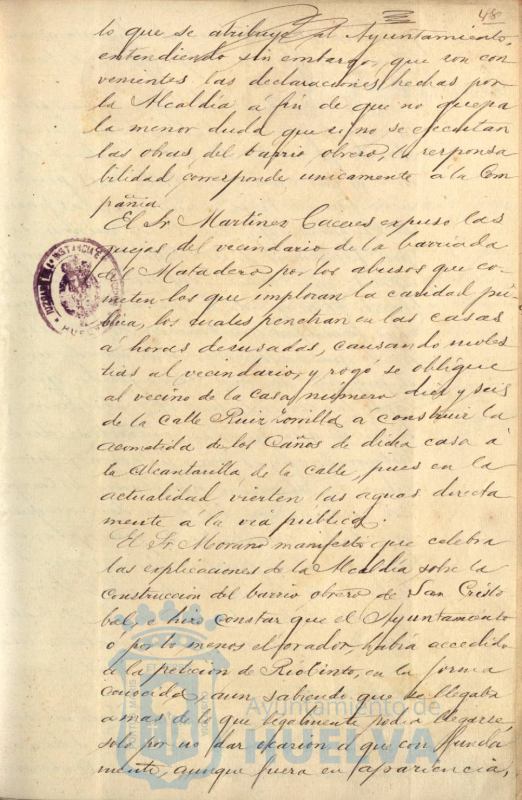 48
lo que se atribuye al Ayuntamiento,
entendiendo sin embargo, que son con
venientes las declaraciones hechas por
la Alcaldia á fin de que no quepa
la menor duda que si no se ejecutan
las obras del barrio obrero, la responsa
bilidad corresponde unicamente á la Com
pañia.
El Sr Martinez Caceres expuso las
quejas del vecindario de la barriada
del Matadero por los abusos que co-
meten los que imploran la caridad pú-
blica, los cuales penetran en las casas
á horas desusadas, causando moles
tias al vecindario, y rogó se obligue
al vecino de la casa numero diez y seis
de la calle Ruiz Zorrilla á construir la
acometida de los caños de dicha casa á
la Alcantarilla de la calle, pues en la
actualidad vierten las aguas directa
mente á la via publica.
El Sr. Morano manifestó que celebra
las explicaciones de la Alcaldia sobre la
construccion del barrio obrero de San Cristo
bal, é hizo constar que el Ayuntamiento
ó por lo menos el orador, habia accedido
á la peticion de Riotinto, en la forma
conocida, aun sabiendo que se llegaba
a mas de lo que legalmente podia llegarse,
solo por no dar ocasion á que con funda
mento, aunque fuera en apariencia,
Ayuntamiento de
HUELVA